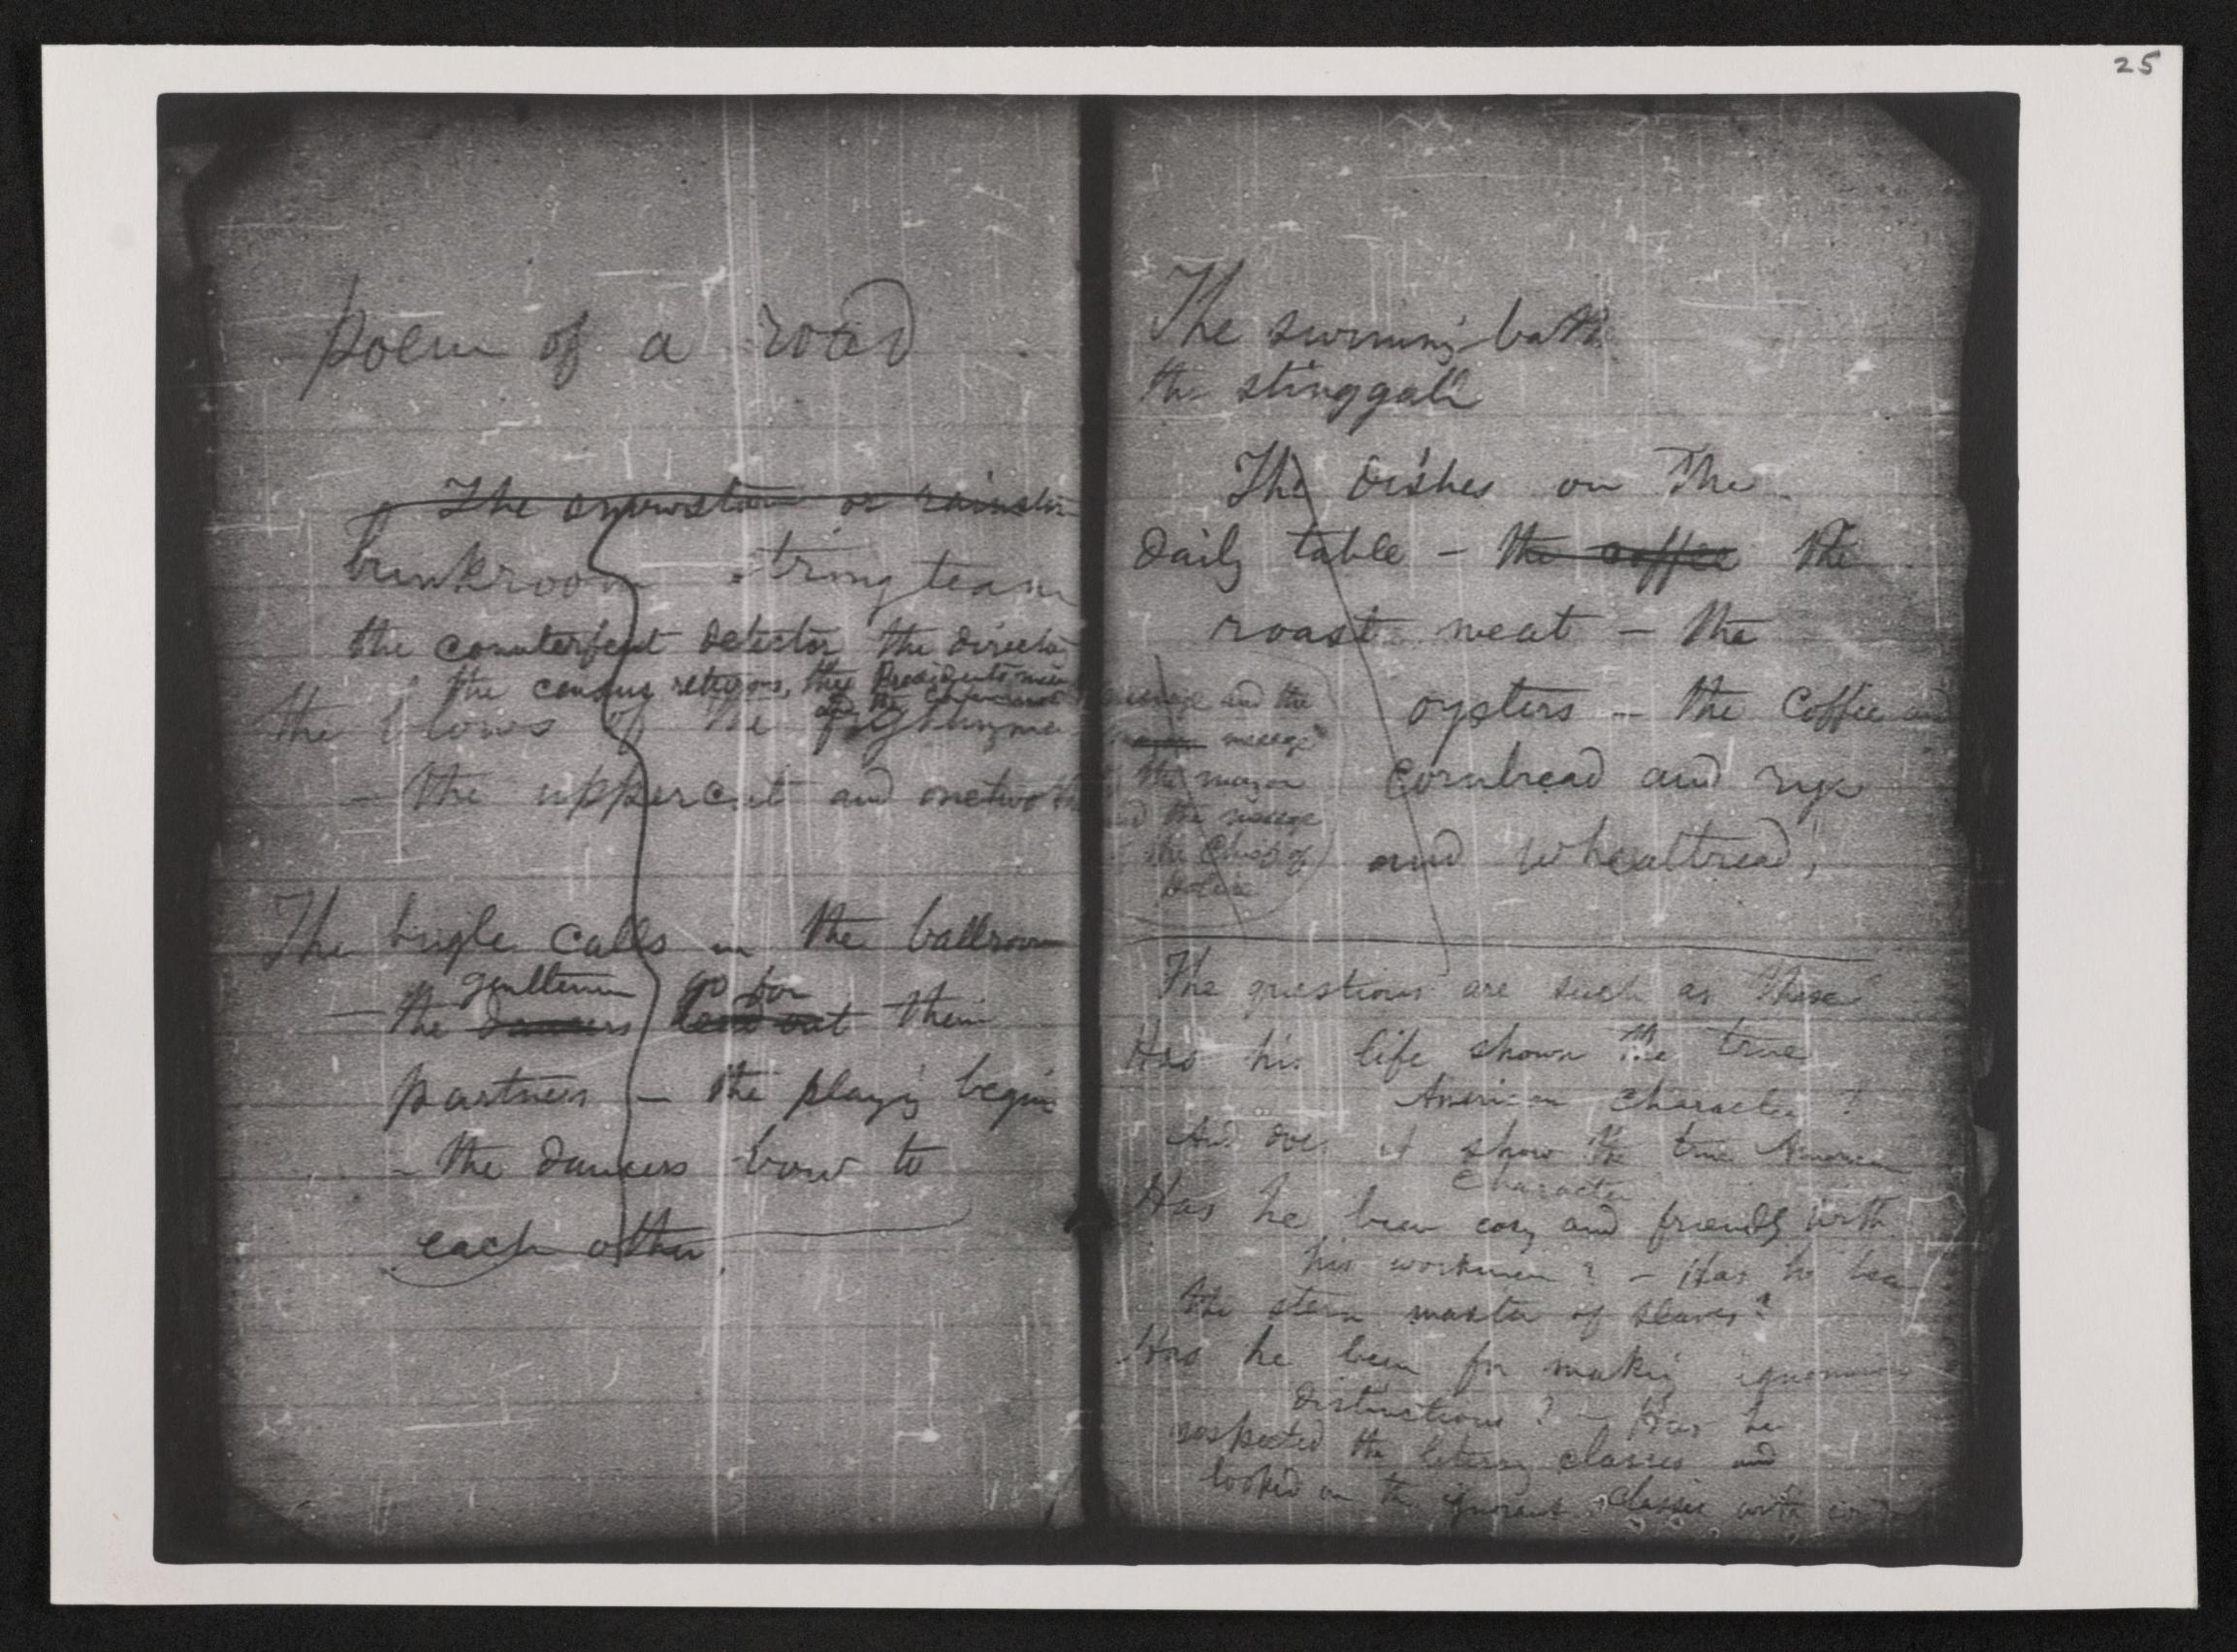 25
poem of a road
The snowstorm or rainstorm
bunkroom stringteam
the counterfeit detector the directory
the census returns, the Presidents mess
the blows of the fighting
– the uppercut and onetwo
The bugle calls in the ballroom
gentlemen go for
– the dancers lead out their
partners – the playing begins
– the dancers bow to
each other
The swimming bath
the
The dishes on the
daily table – the coffee the
roast meat – the
message and the
oysters – the coffee and
message
the mayor
cornbread and rye
and the message
the Chief of
and wheatbread,
police
The questions are such as these
Has his life shown the true
American character?
And does it show the true American
Character
Has he been easy and friendly with
his workmen? – Has he been
the stern master of slaves?
Has he been for making ignominious
distinctions? – Has he
respected the literary classes and
looked on the ignorant classes with